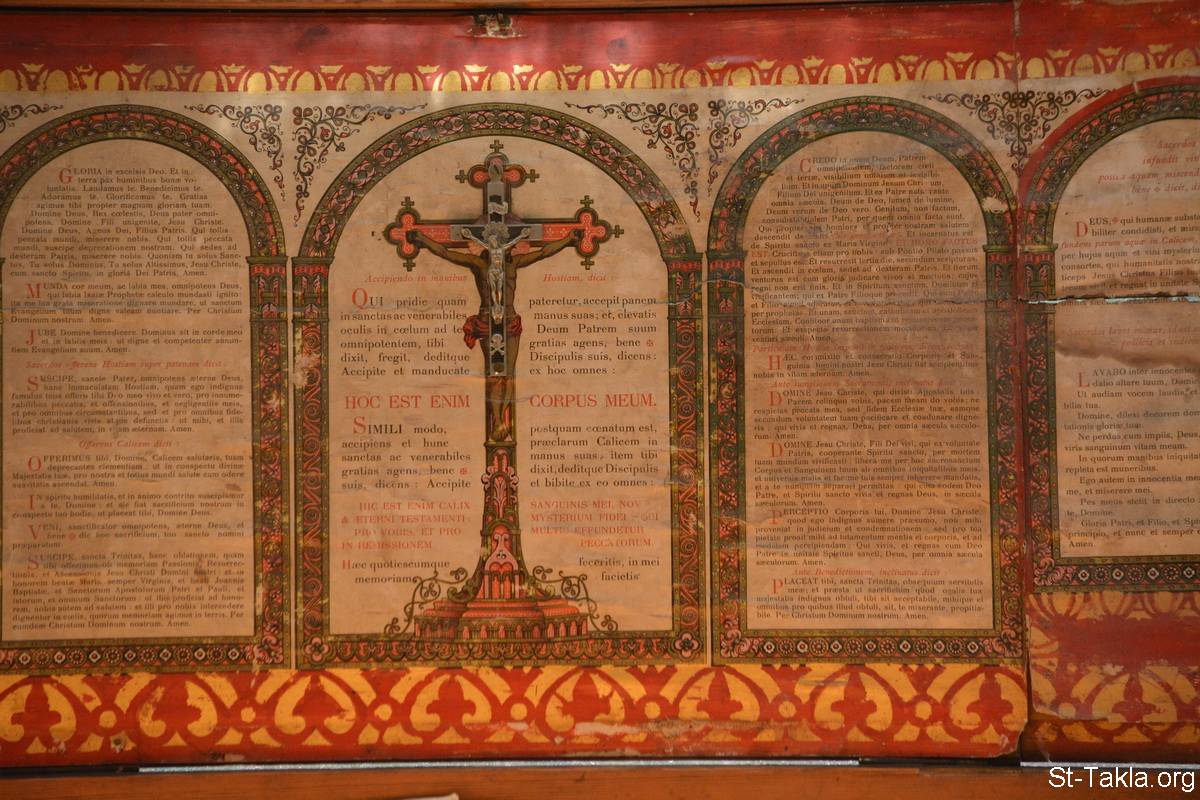 GLORIA in excelsis Deo. Et in
terra pax hominibus bonæ vo-
luntatis. Laudamus te. Benedicimus te.
Adoramus te. Glorificamus te. Gratias
agimus tibi propter magnam gloriam tuam.
Domine Deus, Rex cœlestis, Deus pater omni-
potens. Domine Fili unigenite, Jesu Christe.
Domine Deus, Agnus Dei, Filius Patris. Qui tollis
peccata mundi, miserere nobis. Qui tollis peccata
mundi, suscipe deprecationem nostram. Qui sedes ad
dexteram Patris, miserere nobis. Quoniam tu solus Sanc-
tus, Tu solus Dominus, Tu solus Altissimus, Jesu Christe,
cum sancto Spiritu, in gloria Dei Patris, Amen.
MUNDA cor meum, ac labia mea, omnipotens Deus,
qui labia Isaiæ Prophetæ calculo mundasti ignito:
ita me tua grata miseratione dignare mundare, ut sanctum
Evangelium tuum digne valeam nuntiare. Per Christum
Dominum nostrum. Amen.
JUBE Domine benedicere. Dominus sit in corde meo
et in labiis meis: ut digne et competenter annun-
tiem Evangelium suum. Amen.
Sacerdos offerens Hostiam super patenam dicit:
SUSCIPE, sancte Pater, omnipotens æterne Deus,
hanc immaculatam Hostiam, quam ego indignus
famulus tuus offero tibi Deo meo vivo et vero, pro innume-
rabilibus peccatis, et offensionibus, et negligentiis meis,
et pro omnibus circumstantibus, sed et pro omnibus fide-
libus christianis vivis atque defunctis: ut mihi, et illis
proficiat ad salutem, in vitam æternam. Amen.
Offerens Calicem dicit:
OFFERIMUS tibi, Domine, Calicem salutaris, tuam
deprecantes clementiam: ut in conspectu divinæ
Majestatis tuæ, pro nostra et totius mundi salute cum odore
suavitatis ascendat. Amen.
IN spiritu humilitatis, et in animo contrito suscipiamur
a te, Domine: et sic fiat sacrificium nostrum in
conspectu tuo hodie, ut placeat tibi, Domine Deus.
VENI, sanctificator omnipotens, æterne Deus, et
bene ✠ dic hoc sacrificium, tuo sancto nomini
præparatum.
SUSCIPE, sancta Trinitas, hanc oblationem, quam
tibi offerimus ob memoriam Passionis, Resurrec-
tionis, et Ascensionis Jesu Christi Domini nostri: et in
honorem beatæ Mariæ semper Virginis, et beati Joannis
Baptistæ, et Sanctorum Apostolorum Petri et Pauli, et
istorum, et omnium Sanctorum: ut illis proficiat ad hono-
rem, nobis autem ad salutem: et illi pro nobis intercedere
dignentur in cœlis, quorum memoriam agimus in terris. Per
eumdem Christum Dominum nostrum. Amen.
Accipiendo in manibus Hostiam, dicit:
QUI pridie quam pateretur, accepit panem
in sanctas ac venerabiles manus suas; et, elevatis
oculis in cœlum ad te Deum Patrem suum
omnipotentem, tibi gratias agens, bene ✠
dixit, fregit, deditque Discipulis suis, dicens:
Accipite et manducate ex hoc omnes:
HOC EST ENIM CORPUS MEUM.
SIMILI modo, postquam cœnatum est,
accipiens et hunc præclarum Calicem in
sanctas ac venerabiles manus suas, item tibi
gratias agens, bene ✠ dixit, deditque Discipulis
suis, dicens: Accipite et bibite ex eo omnes:
HIC EST ENIM CALIX SANGUINIS MEI, NOVI
& ÆTERNI TESTAMENTI: MYSTERIUM FIDEI: QUI
PRO VOBIS, ET PRO MULTIS EFFUNDETUR
IN REMISSIONEM PECCATORUM.
Hæc quotiescumque feceritis, in mei
memoriam facietis
CREDO in unum Deum, Patrem
omnipotentem, factorem cœli
et terræ, visibilium omnium et invisibi-
lium. Et in unum Dominum Jesum Christum,
Filium Dei unigenitum. Et ex Patre natum ante
omnia sæcula. Deum de Deo, lumen de lumine,
Deum verum de Deo vero. Genitum, non factum,
consubstantialem Patri, per quem omnia facta sunt.
Qui propter nos homines et propter nostram salutem
descendit de cœlis. Et incarnatus est
de Spiritu sancto ex Maria Virgine: ET HOMO FACTUS
EST. Crucifixus etiam pro nobis: sub Pontio Pilato passus
et sepultus est. Et resurrexit tertia die, secundum Scripturas.
Et ascendit in cœlum, sedet ad dexteram Patris. Et iterum
venturus est cum gloria judicare vivos et mortuos: cujus
regni non erit finis. Et in Spiritum sanctum, Dominum
HÆC commixtio et consecratio Corporis et San-
guinis Domini nostri Jesu Christi fiat accipientibus
nobis in vitam æternam. Amen.
DOMINE Jesu Christe, qui dixisti Apostolis tuis:
Pacem relinquo vobis, pacem meam do vobis: ne
respicias peccata mea, sed fidem Ecclesiæ tuæ, eamque
secundum voluntatem tuam pacificare et coadunare digne-
ris: qui vivis et regnas, Deus, per omnia sæcula sæculo-
rum. Amen.
DOMINE Jesu Christe, Fili Dei vivi, qui ex voluntate
Patris, cooperante Spiritu sancto, per mortem
tuam mundum vivificasti: libera me per hoc sacrosanctum
Corpus et Sanguinem tuum ab omnibus iniquitatibus meis,
et universis malis: et fac me tuis semper inhærere mandatis,
et a te numquam separari permittas: qui cum eodem Deo
Patre, et Spiritu sancto vivis et regnas Deus, in sæcula
sæculorum. Amen.
PERCEPTIO Corporis tui, Domine Jesu Christe,
quod ego indignus sumere præsumo, non mihi
proveniat in judicium et condemnationem: sed pro tua
pietate prosit mihi ad tutamentum mentis et corporis, et ad
medelam percipiendam: Qui vivis, et regnas cum Deo
Patre in unitate Spiritus sancti, Deus, per omnia sæcula
sæculorum. Amen.
Ante Benedictionem, inclinatus dicit:
PLACEAT tibi, sancta Trinitas, obsequium servitutis
meæ; et præsta ut sacrificium quod oculis tuæ
majestatis indignus obtuli, tibi sit acceptabile, mihique et
omnibus pro quibus illud obtuli, sit, te miserante, propitia-
bile. Per Christum Dominum nostrum. Amen.
DEUS, ✠ qui humanæ
biliter condidisti, et
per hujus aquæ et vini
consortes, qui humanitatis
ticeps Jesus Christus Filius
LAVABO inter innocentes
dabo altare tuum, Domine
Ut audiam vocem laudis
bilia tua.
Domine, dilexi decorem
tationis gloriæ tuæ.
Ne perdas cum impiis, Deus
viris sanguinum vitam meam.
In quorum manibus iniquitates
repleta est muneribus.
Ego autem in innocentia
me, et miserere mei.
Pes meus stetit in directo
te, Domine.
Gloria Patri, et Filio, et
principio, et nunc et semper
Amen.
St-Takla.org